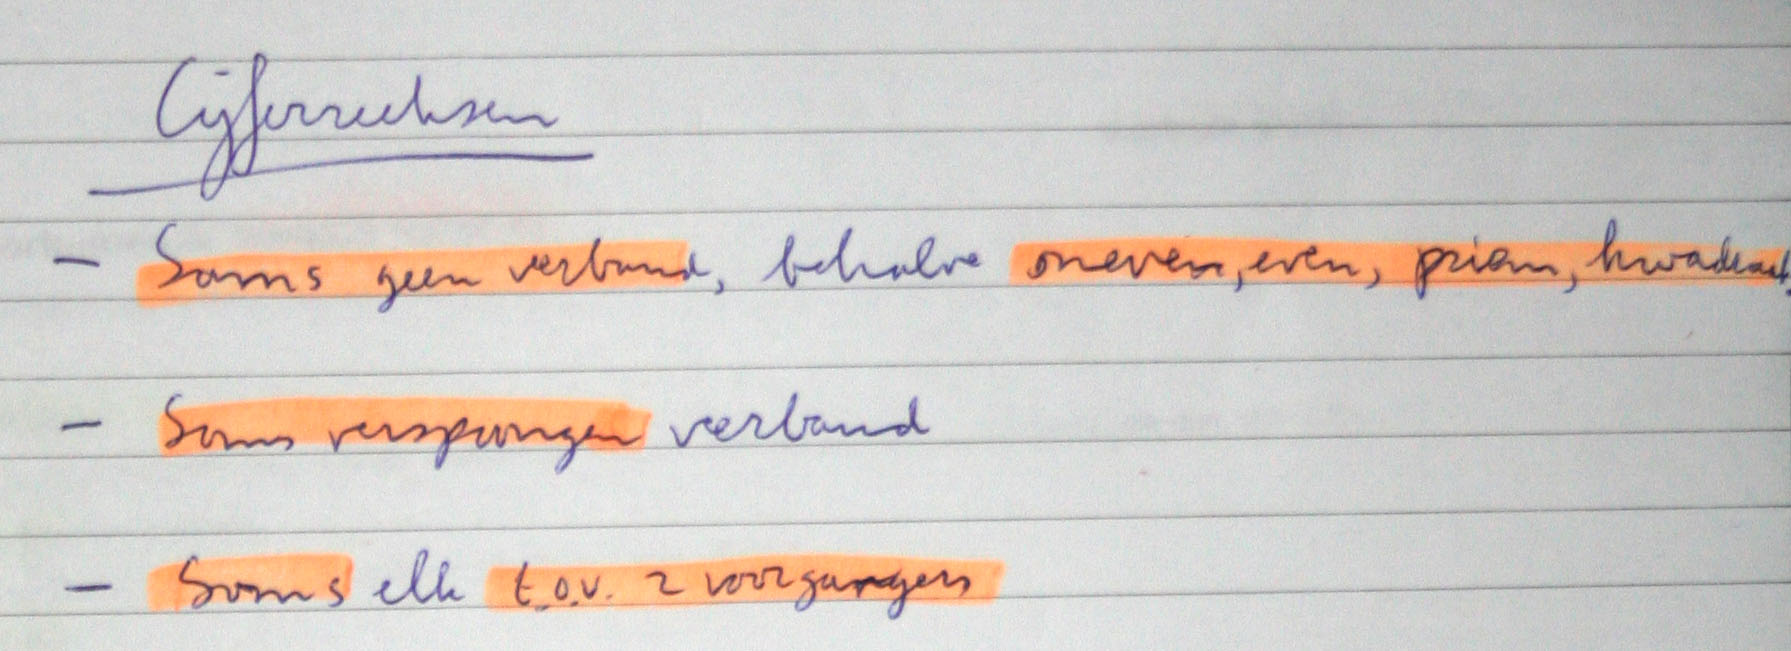 Cijferreeksen
- Soms geen verband, behalve oneven, even, priem, kwadraat,
- Soms verspringen verband
- Soms elk t.o.v. 2 voorgangers